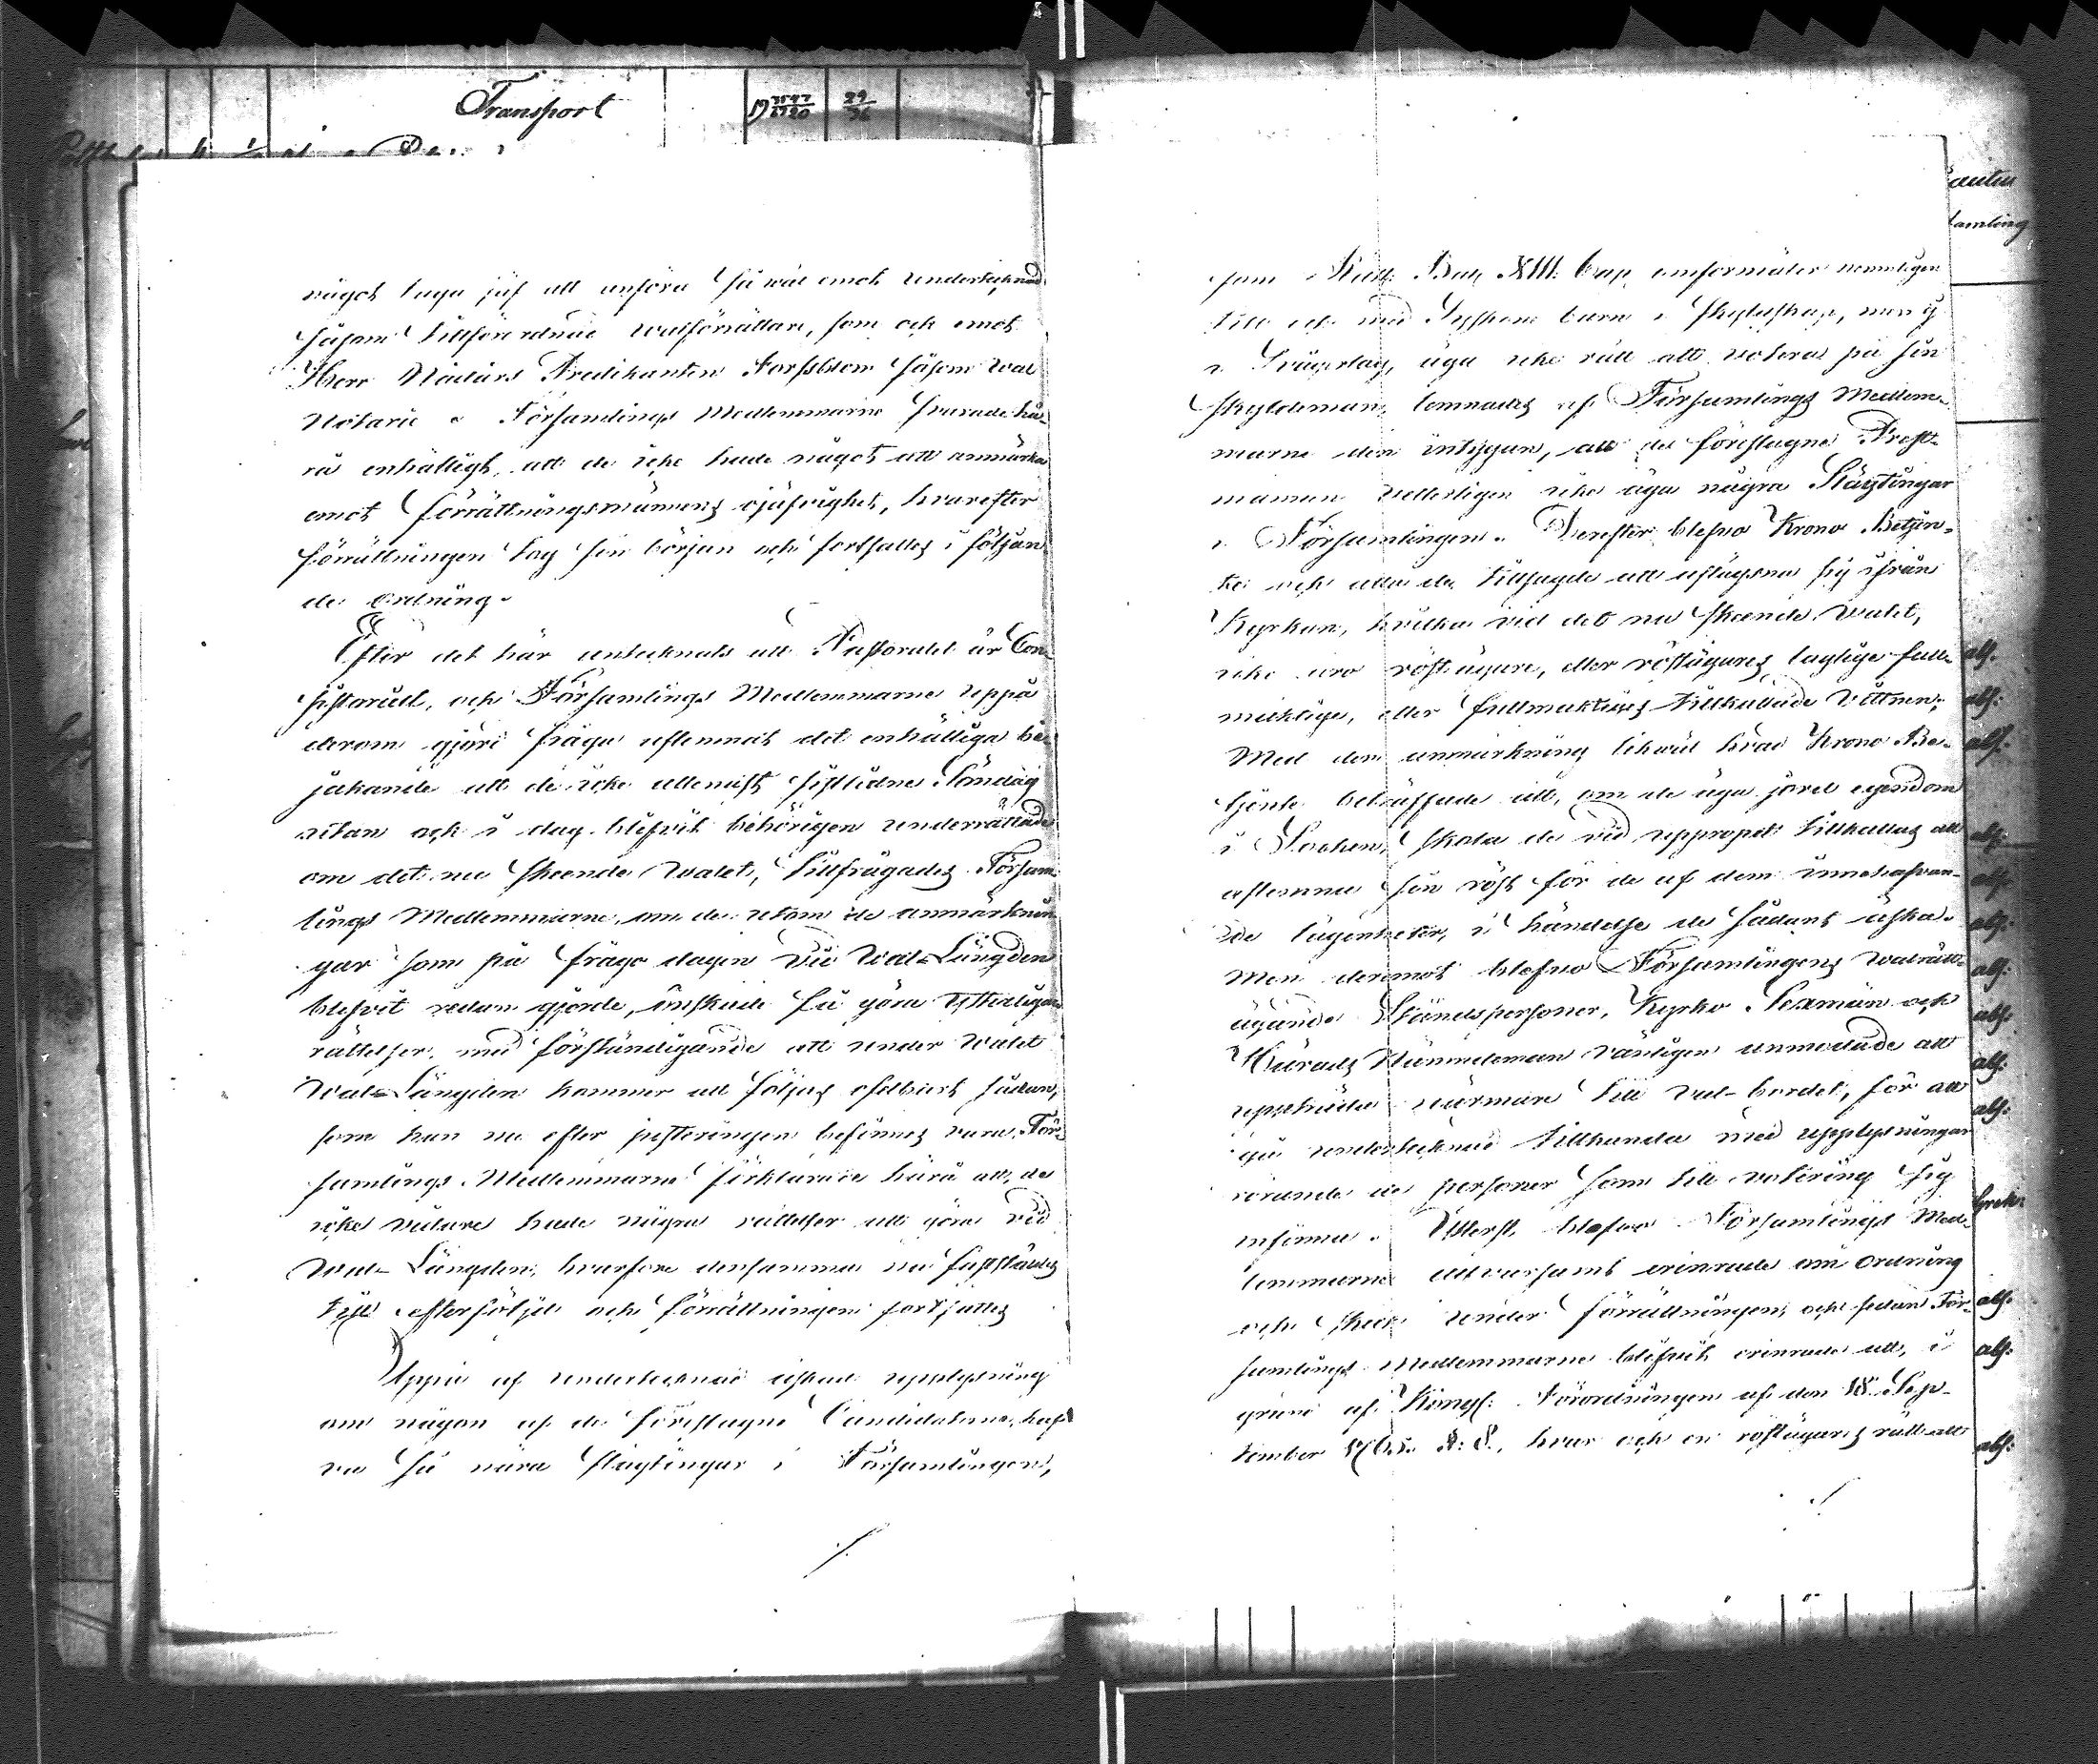 Transport
något laga jäf att anföra så wäl emot undertecknad
såsom tillförordnad walförrättare, som ock emot
Herr Nådårs Predikanten Forssblom såsom Wal
Notarie. Församlings Medlemmarne swarade här-
å enhälligt, att de icke hade något att anmärka
emot förrättningsmännens ojäfvighet, hvarefter
förrättningen tog sin början och fortsattes i följan
de ordning.
Efter det här antecknats att Pastoratet är Con-
sistoriellt, och Församlings Medlemmarne uppå
derom gjord fråga aflemnat det enhälliga be-
jakande att de icke allenast sistledne Söndag
utan ock i dag blifvit behörigen underrättade
om det nu skeende walet, tillfrågades Försam
lings Medlemmarne, om de utom de anmärknin
gar som på frågo dagen vid Wal-Längden
blifvit redan gjorde, önskade få göra ytterligare
rättelser, med förständigande att under walet
Wal-Längden kommer att följas ofelbart sådan,
som han nu efter justeringen befinnes vara. För-
samlings Medlemmarne förklarade härå att, de
icke vidare hade några rättelser att göra vid
Wal-Längden, hvarföre densamma nu fastställdes
till efterföljd och förrättningen fortsattes
Uppå af undertecknad äskad upplysning
om någon af de föreslagne Candidaterne, haf
va så nära slägtingar i Församlingen,
./.
som Rätt. Balk XIII. Cap. omförmäler nemligen
till och med Syskone barn i Skyldskap, men ej
i Svågerlag, äga icke rätt att votera på sin
Skyldeman, lemnades af Församlings Medlem-
marne den intygan, att de föreslagne Prest-
männen vetterligen icke äga några Slägtingar
i Församlingen. Derefter blefvo Krono Betjen-
te och alla de tillsagde att aflägsna sig ifrån
Kyrkan, hvilka vid det nu skeende walet,
icke äro röstägare, eller röstägares laglige full-
mäktige, eller fullmäktiges tillkallade vittnen;
Med den anmärkning likwäl hvad Krono Be-
tjente beträffade att, om de äga jord egendom
i Socken, skola de vid uppropet tillkallas att
aflemna sin röst för de af dem innehafvan-
de lägenheter, i händelse de sådant äska.
Men deremot blefvo Församlingens walrätt-
ägande Ståndspersoner, Kyrko Sexmän och
Härads Nämndeman vänligen anmodade att
uppträda närmare till val-bordet, för att
gå undertecknad tillhanda med upplysningar
rörande de personer som till votering sig
infinna. Ytterst blefvo Församlings Med-
lemmarne allvarsamt erinrade om ordning
och skick under förrättningen, och sedan För-
samlings Medlemmarne blifvit erinrade att, i
grund af Kongl: Förordningen af den 18. Sep-
tember 1765. §: 8., hvar och en röstägares rätt att
./.
samling
abs.
abs:
abs.
abs:
abs.
abs:
abs:
abs.
abs:
abs:
abs.
abs.
abs: